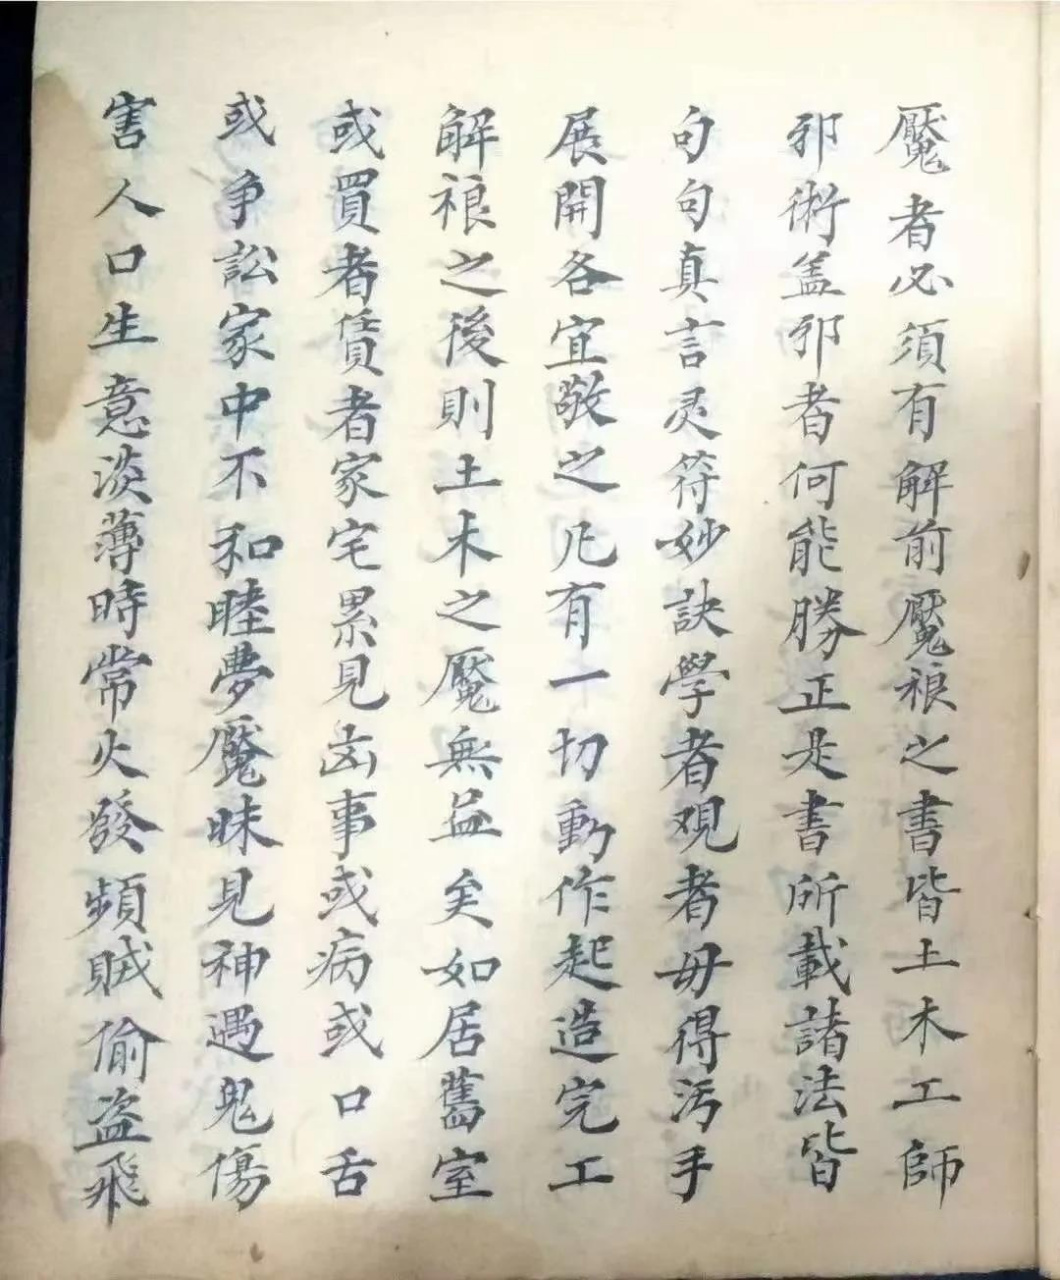 魘者必須有解前魘䘞之書皆土木工師
邪術盖邪者何能勝正是書所載諸法皆
句句真言灵符妙訣學者观者毋得污手
展開各宜敬之凡有一切動作起造完工
解䘞之後則土木之魘無益矣如居舊室
或買者賃者家宅累見凶事或病或口舌
或争訟家中不和睦夢魘昧見神遇鬼傷
害人口生意淡薄時常火發頻賊偷盗飛